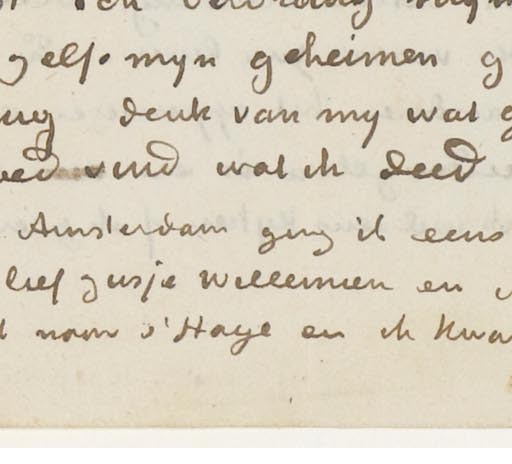 gelf. myn geheimen g
denk van my wat g
vind wat ik deed
Amsterdam ging ik eens
lief zusje Willemien en
naar s'Hage en ik kwa